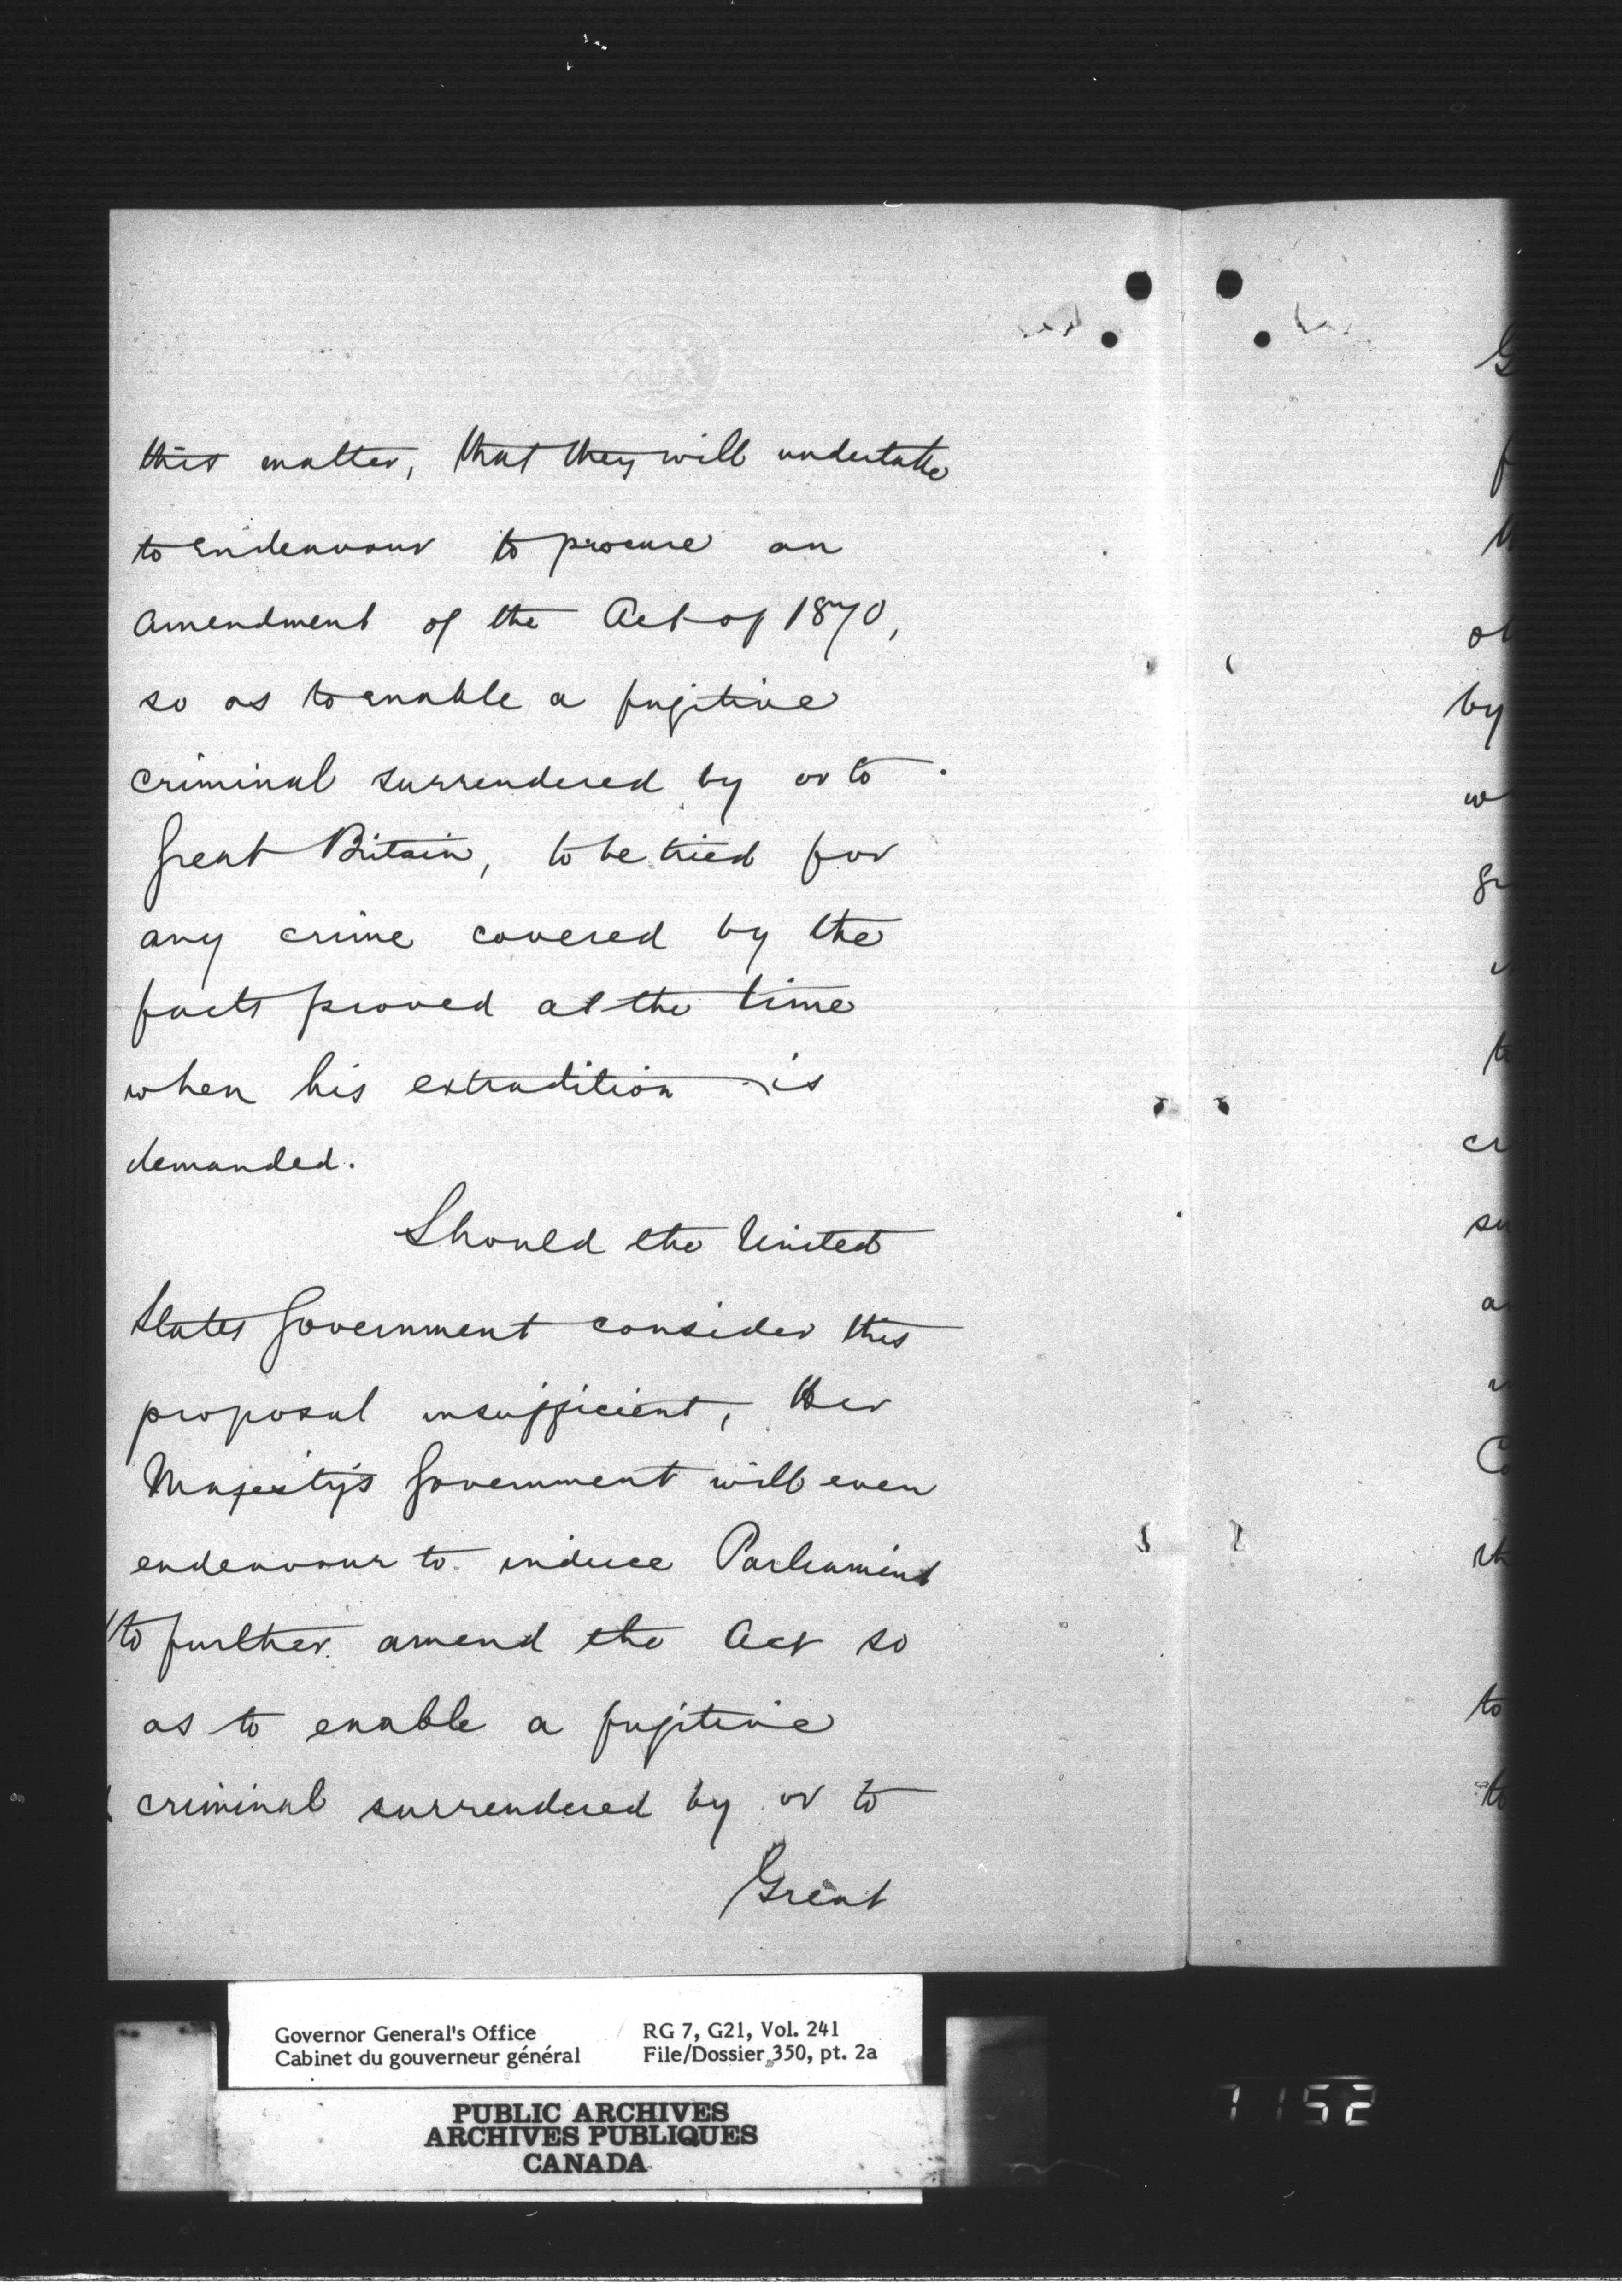 this matter, that they will undertake
to endeavour to procure an
amendment of the Act of 1870,
so as to enable a fugitive
criminal surrendered by or to
Great Britain, to be tried for
any crime covered by the
facts proved at the time
when his extradition is
demanded.
Should the United
States Government consider this
proposal insufficient, Her
Majesty's Government will even
endeavour to induce Parliament
to further amend the Act so
as to enable a fugitive
criminal surrendered by or to
Great
by
to
Governor General's Office
Cabinet du gouverneur général
RG 7, G21, Vol. 241
File/Dossier 350, pt. 2a
PUBLIC ARCHIVES
ARCHIVES PUBLIQUES
CANADA
7152